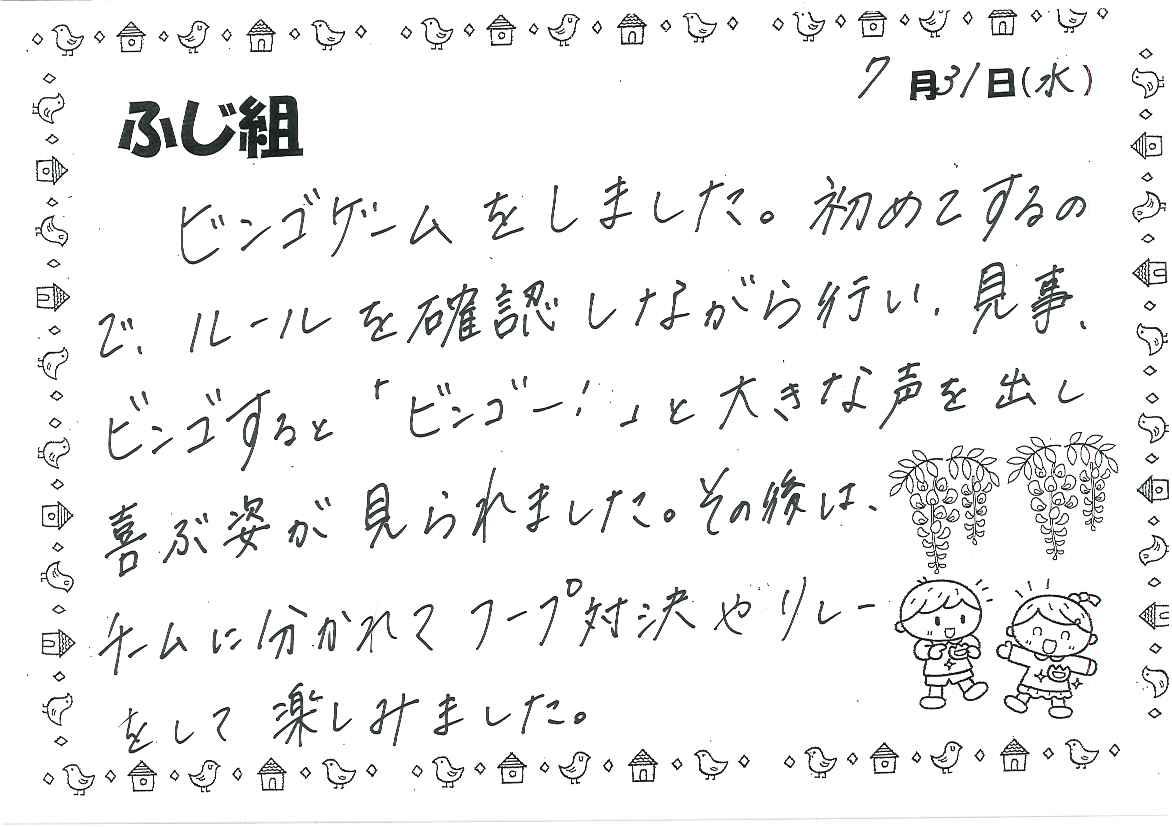 7月31日(水)
ふじ組
ビンゴゲームをしました。初めてするの
で、ルールを確認しながら行い、見事、
ビンゴすると「ビンゴー!」と大きな声を出し
喜ぶ姿が見られました。その後は、
チームに分かれてフープ対決やリレー
をして楽しみました。